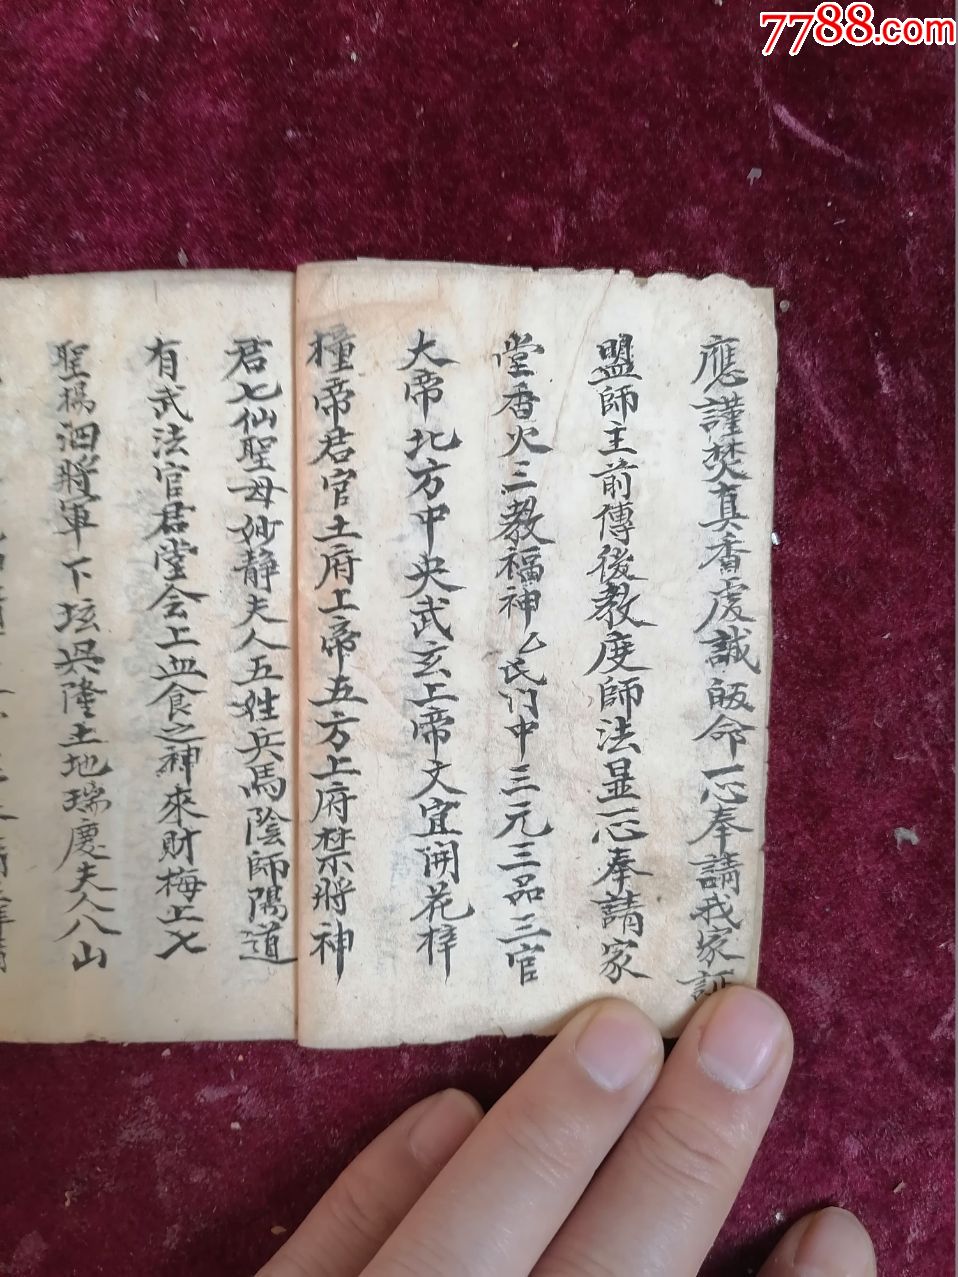 7788.com
應謹焚真香虔誠皈命一心奉請我家証
盟師主前傳後教度師法显一心奉請家
堂香火三教福神厶民门中三元三品三官
大帝北方中央武玄上帝文宜開花梓
橦帝君官土府上帝五方上府禁將神
君七仙聖母妙静夫人五姓兵馬陰師陽道
有武法官君堂会上血食之神來財梅上七
聖楊泗將軍下坛吳隆土地瑞慶夫人八山